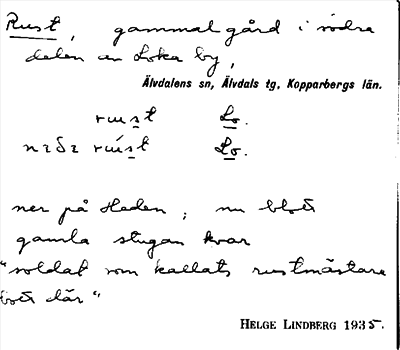 Rust, gammal gård i södra
delen av Loka by,
Älvdalens sn, Älvdals tg, Kopparbergs län.
rust Lo.
Lo.
ner på Heden; nu blott
gamla stugan kvar
"soldat som kallats rustmästare
bott där"
HELGE LINDBERG 1935.